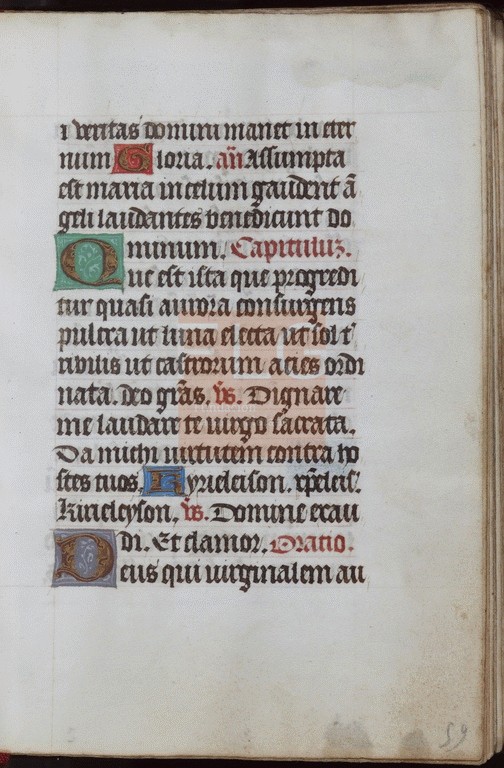 i veritas domini manet in eter
num Gloria. an̄ Assumpta
est maria in celum gaudent ā
geli laudantes benedicunt do
minum. Capituluꝫ.
Que est ista que progredi
tur quasi aurora consurgens
pulcra ut luna electa ut sol t̄
ribilis ut castrorum acies ordi
nata. deo grās. v̄s. Dignare
me laudare te virgo sacrata.
Da michi virtutem contra ho
stes tuos. Kyrieleison. xp̄eleis̄.
Kirieleyson. v̄s. Domine exau
di. Et clamor. Oratio.
Deus qui virginalem au
59